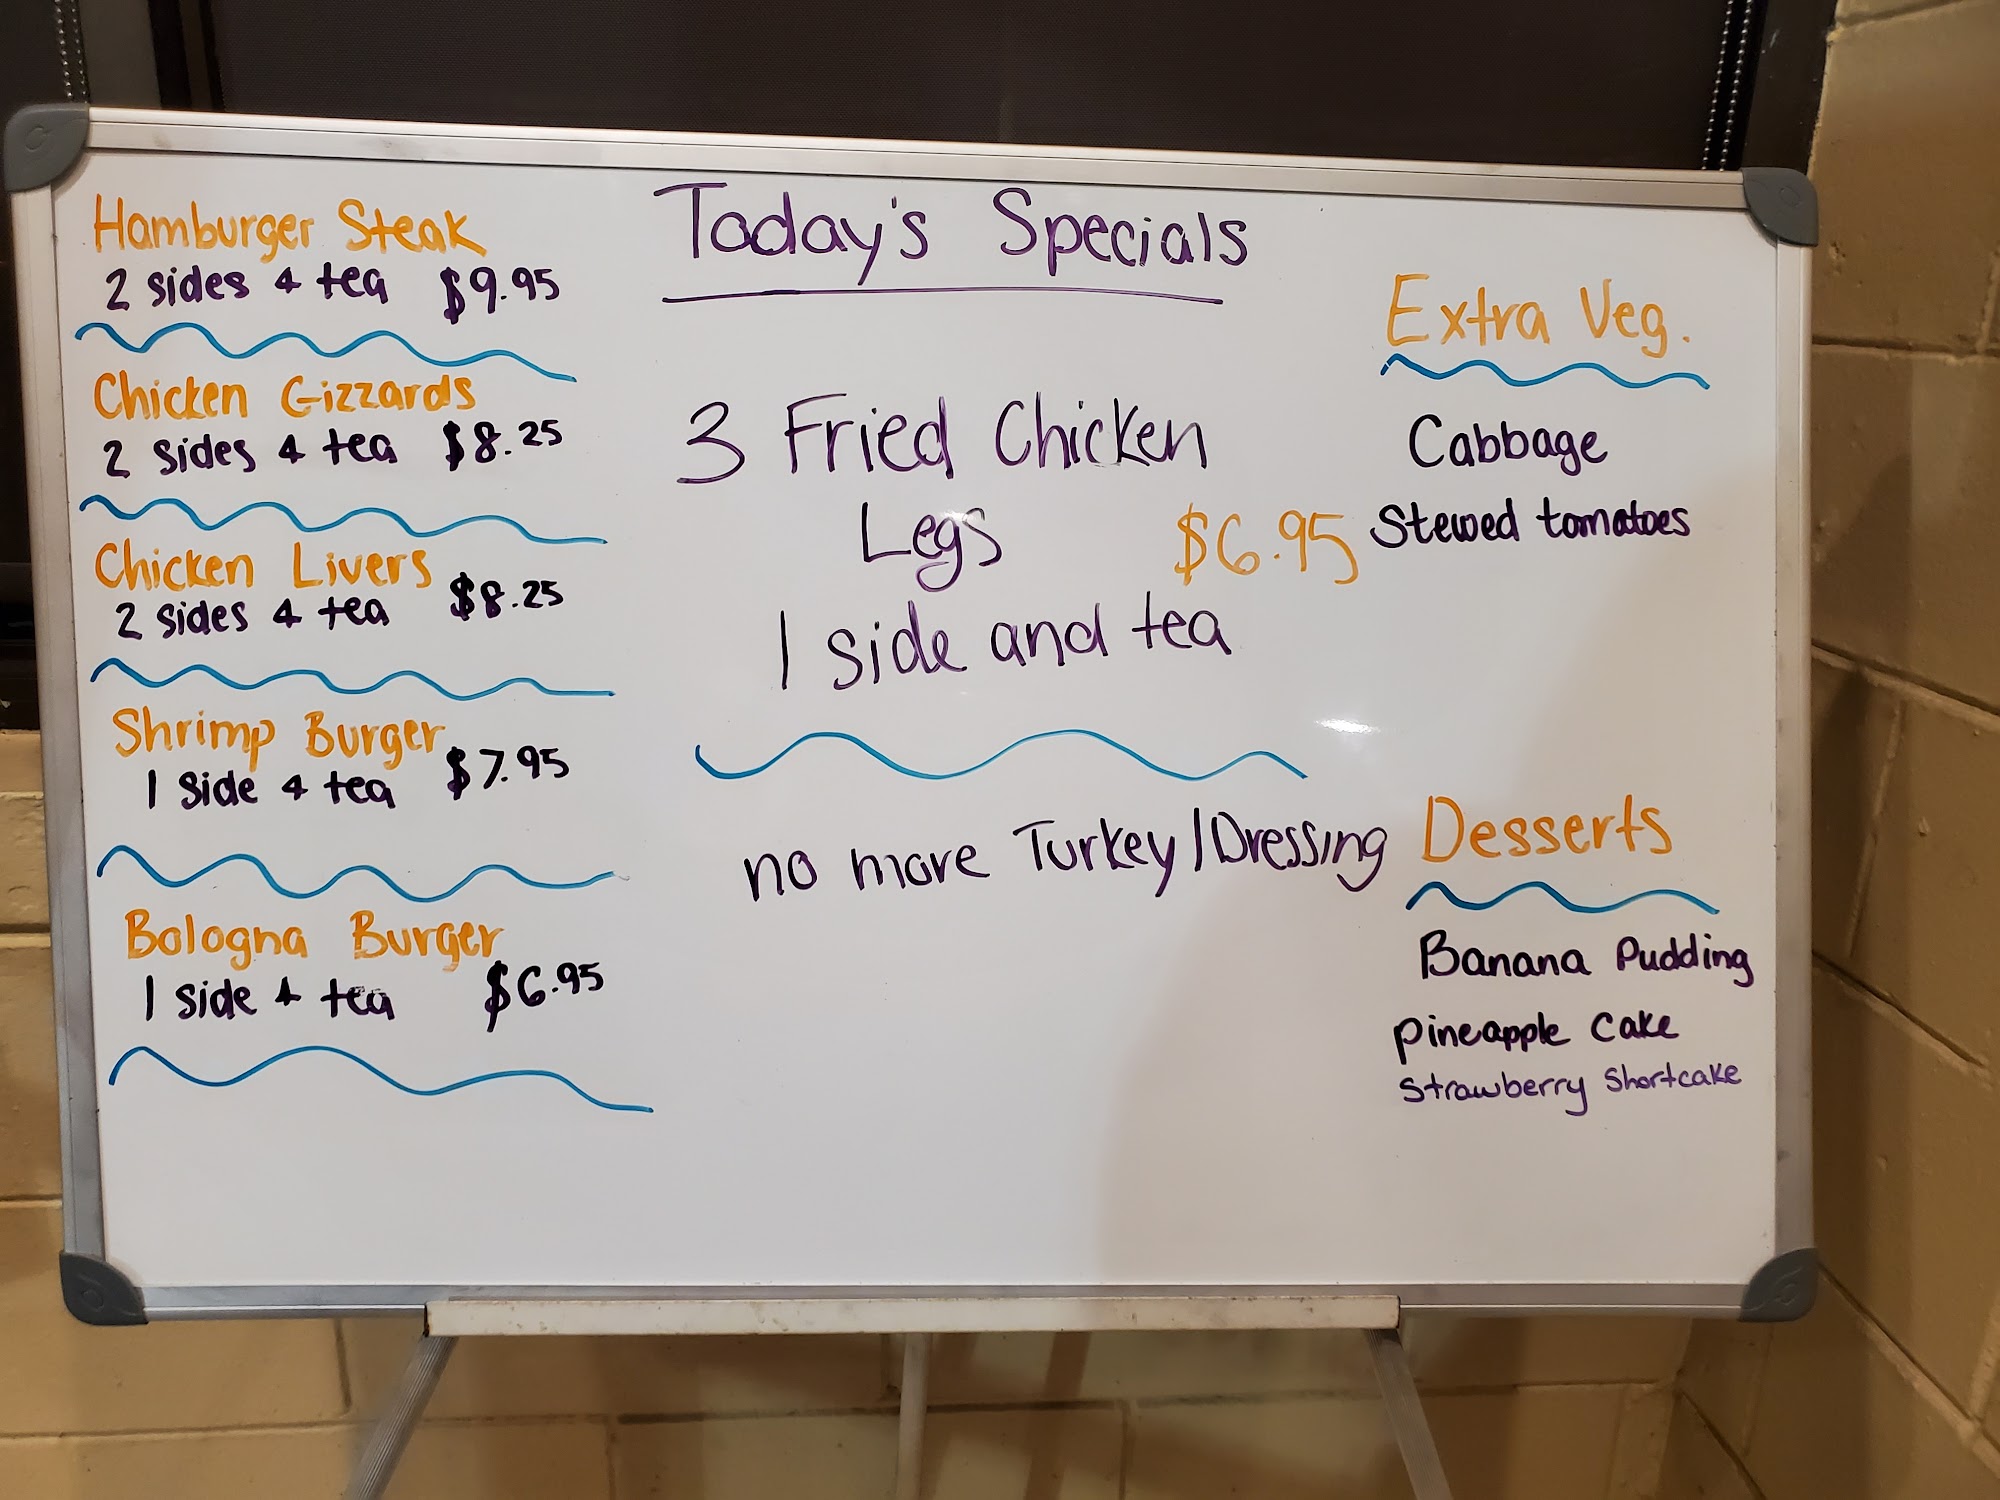 Today's Specials
Hamburger Steak
2 sides & tea $9.95
Chicken Gizzards
2 sides & tea $8.25
Chicken Livers
2 sides & tea $8.25
Shrimp Burger
1 side & tea $7.95
Bologna Burger
1 side & tea $6.95
3 Fried Chicken
Legs $6.95
1 side and tea
no more Turkey/Dressing
Extra Veg.
Cabbage
Stewed tomatoes
Desserts
Banana Pudding
Pineapple Cake
Strawberry Shortcake